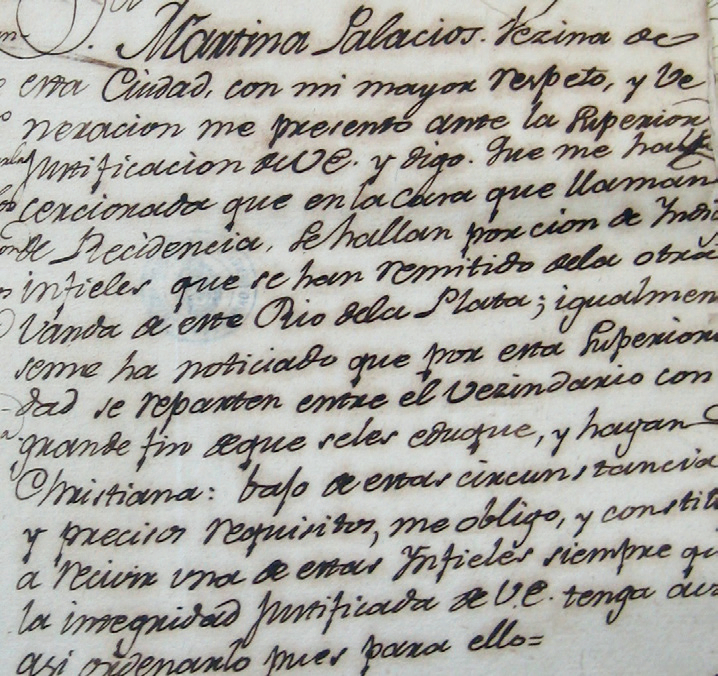 Martina Palacios. Vezina de
esta Ciudad, con mi mayor respeto, y Ve
neracion me presento ante la Superior
Justificacion de V.E. y digo. Que me hallo
cercionada que en la casa que llaman
de Recidencia, se hallan porcion de Indi
infieles que se han remitido dela otra
Vanda de este Rio dela Plata; igualmen
seme ha noticiado que por esta Superiori
dad se reparten entre el Vezindario con
grande fin deque seles eduque, y hagan
Christiana: bajo de estas circunstancia
y precisos requisitos, me obligo, y constit
a recivir una de estas Ynfieles siempre qu
la integridad Justificada de V.E. tenga
asi ordenarlo pues para ello=